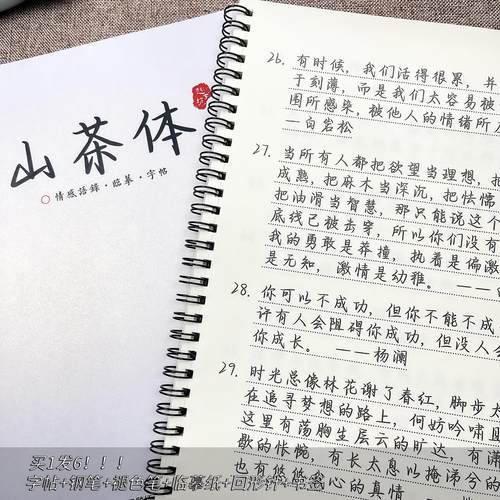 山茶体
情感語錄·临摹·字帖
26. 有时候，我们活得很累，并
于刻薄，而是我们太容易被
围所感染，被他人的情绪所
—白岩松
27. 当所有人都把欲望当理想，把
成熟，把麻木当深沉，把怯懦
把油滑当智慧，那只能说这个
底线已被击穿，所以你们没有
我的勇敢是莽撞，执着是偏激
是无知，激情是幼稚。——
28. 你可以不成功，但你不能不成
许有人会阻碍你成功，但没人会
你成长。——杨澜
29. 时光总像林花谢了春红，脚步太
在追寻梦想的路上，何妨吟啸
这里有荡胸生层云的旷达，有潇
歌的怅惋，有长太息以掩涕兮的
也有悠悠我心的真情
买1发6！！！
字帖+钢笔+褪色笔+临摹纸+回形针+